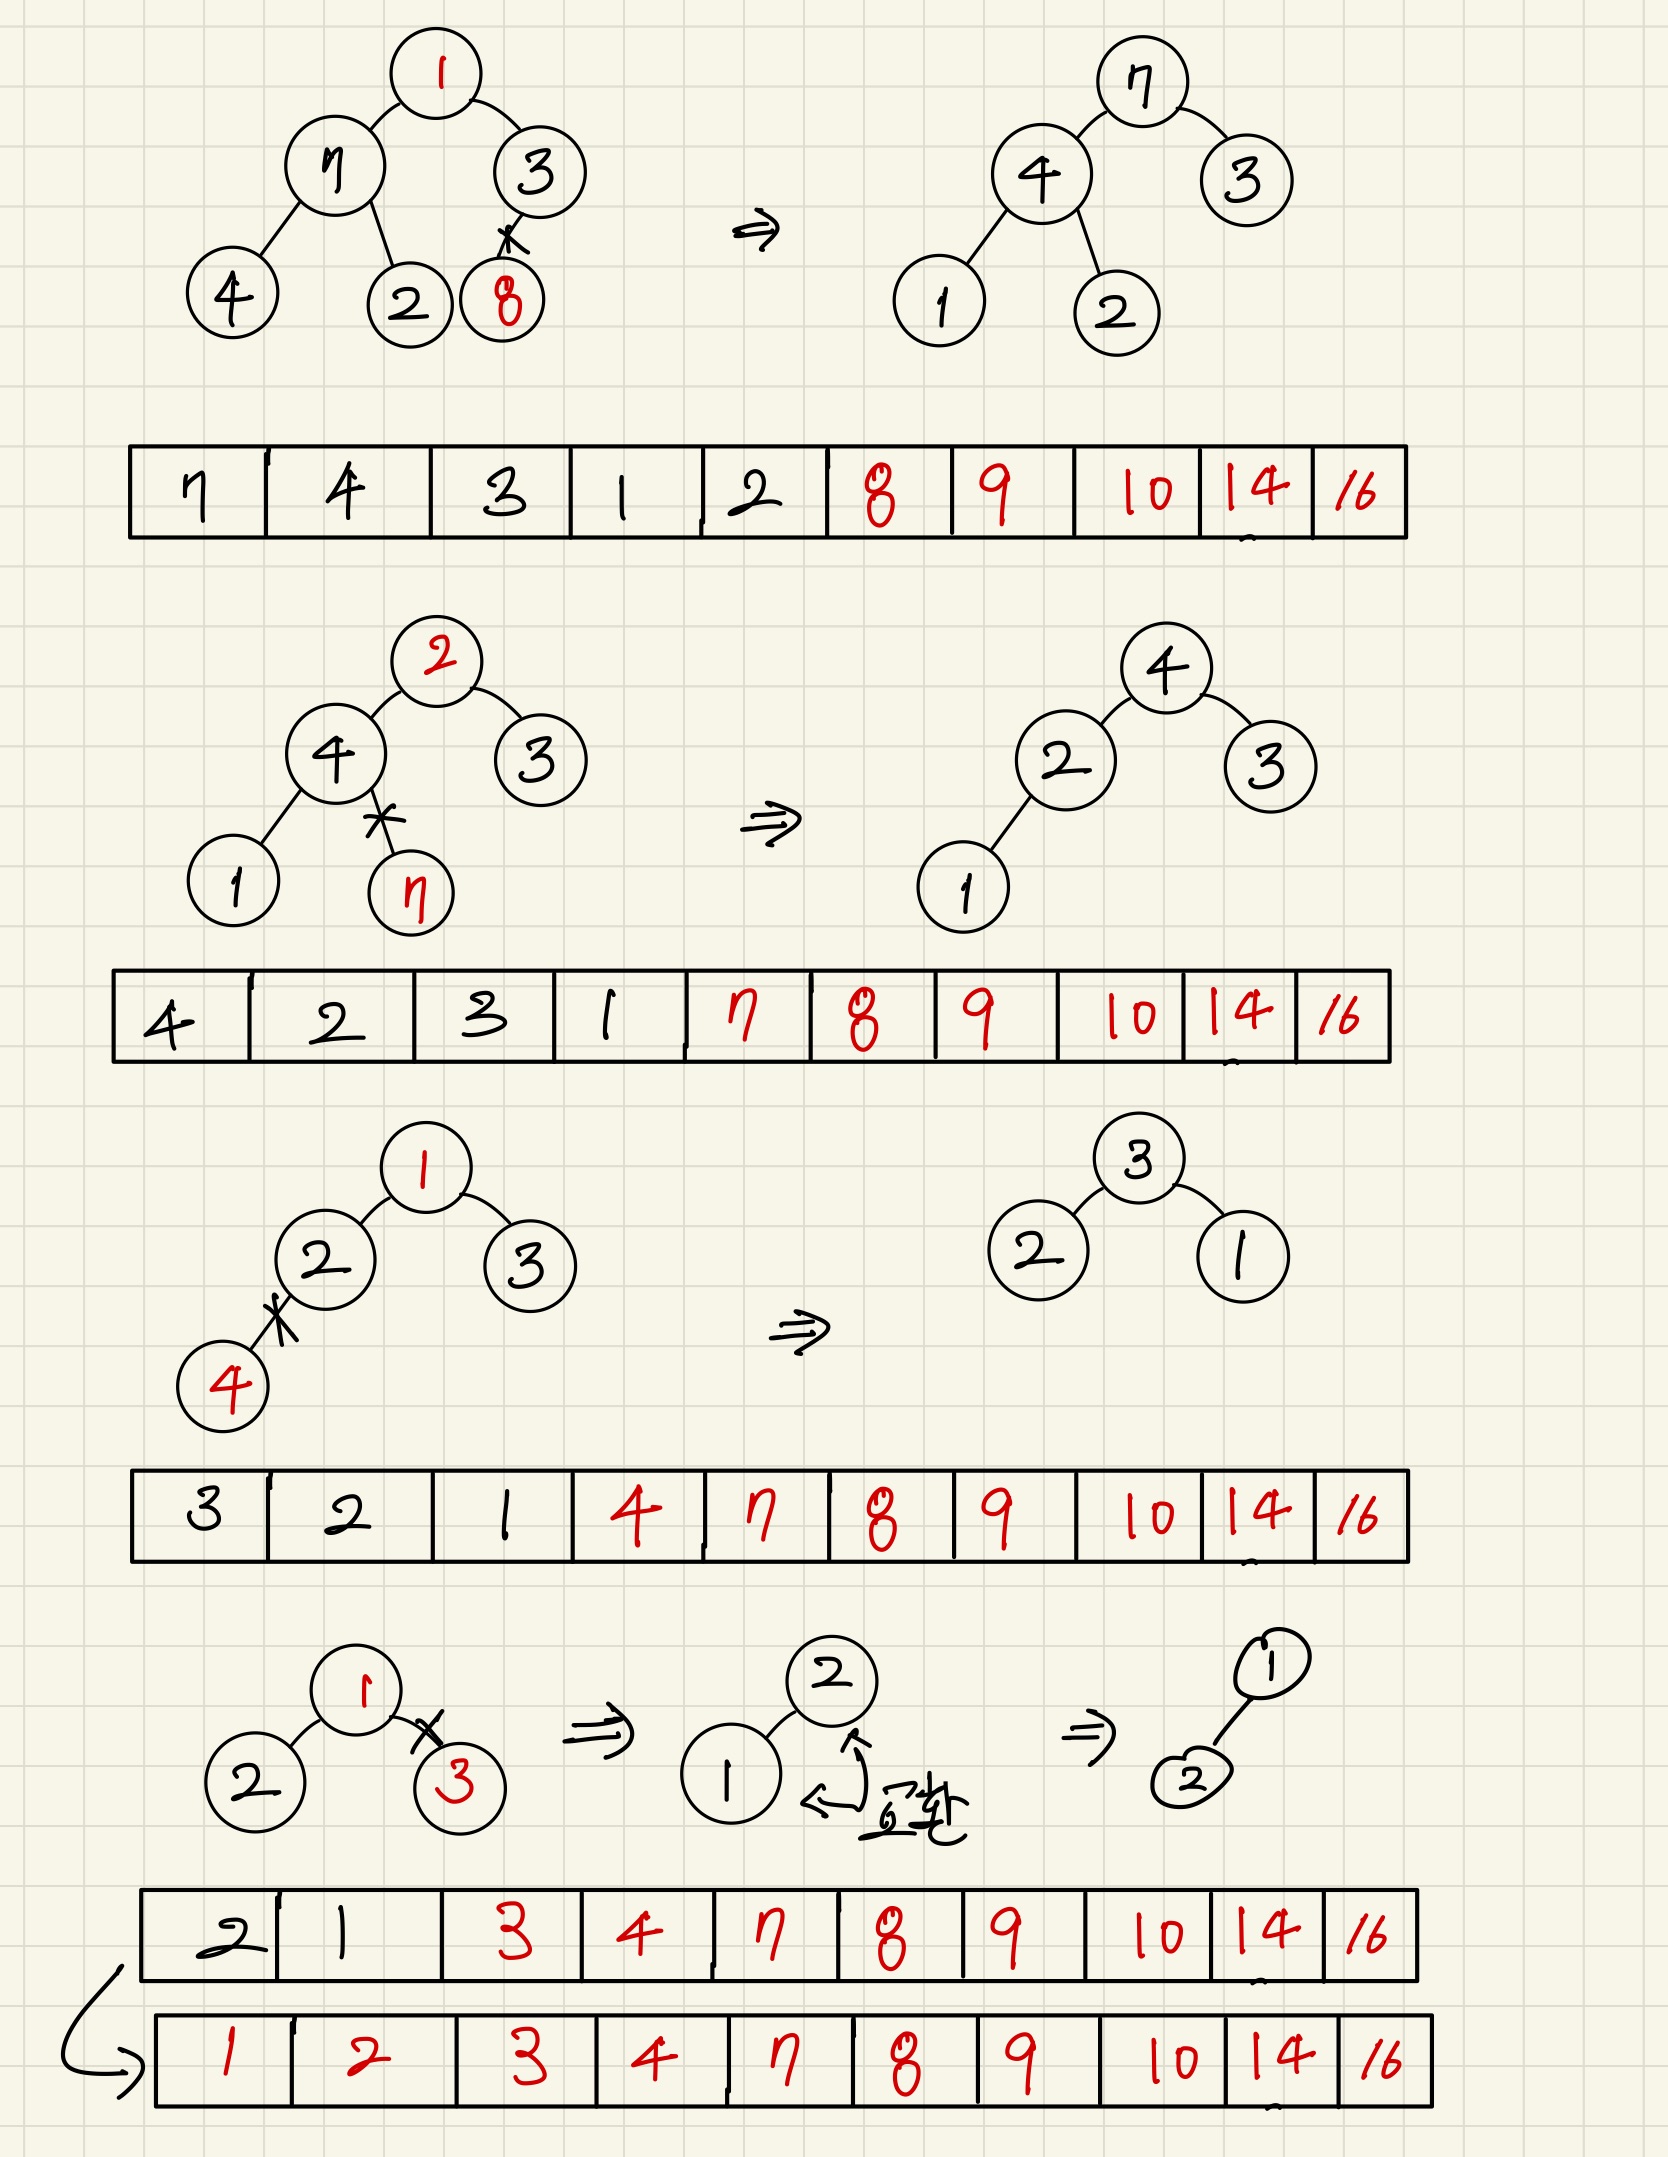 1
7 3
4 2 8
7
4 3
1 2
7 4 3 1 2 8 9 10 14 16
2
4 3
1 7
4
2 3
1
4 2 3 1 7 8 9 10 14 16
1
2 3
4
3
2 1
3 2 1 4 7 8 9 10 14 16
1
2 3
2
1
1
2
2 1 3 4 7 8 9 10 14 16
1 2 3 4 7 8 9 10 14 16